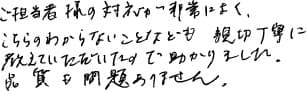 ご担当者様の対応が非常によく、
こちらのわからないことなども 親切丁寧に
教えていただいたので助かりました。
品質も問題ありません。